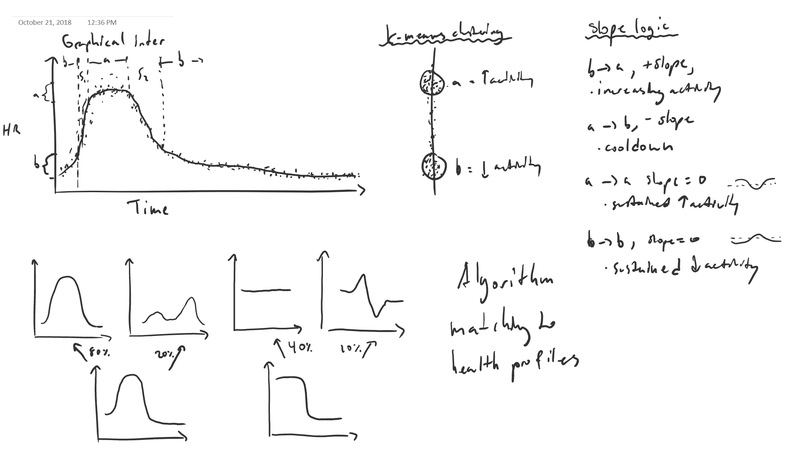 October 21, 2018 12:36 PM
Graphical Inter
b a b →
S₁ S₂
a
HR
b
Time
k-means clustering
a = ↑ activity
b = ↓ activity
slope logic
b → a, + slope,
• increasing activity
a → b, - slope
• cooldown
a → a slope = 0
• sustained ↑ activity
b → b, slope = 0
• sustained ↓ activity
80% 20% 40% 10%
Algorithm
matching to
health profiles